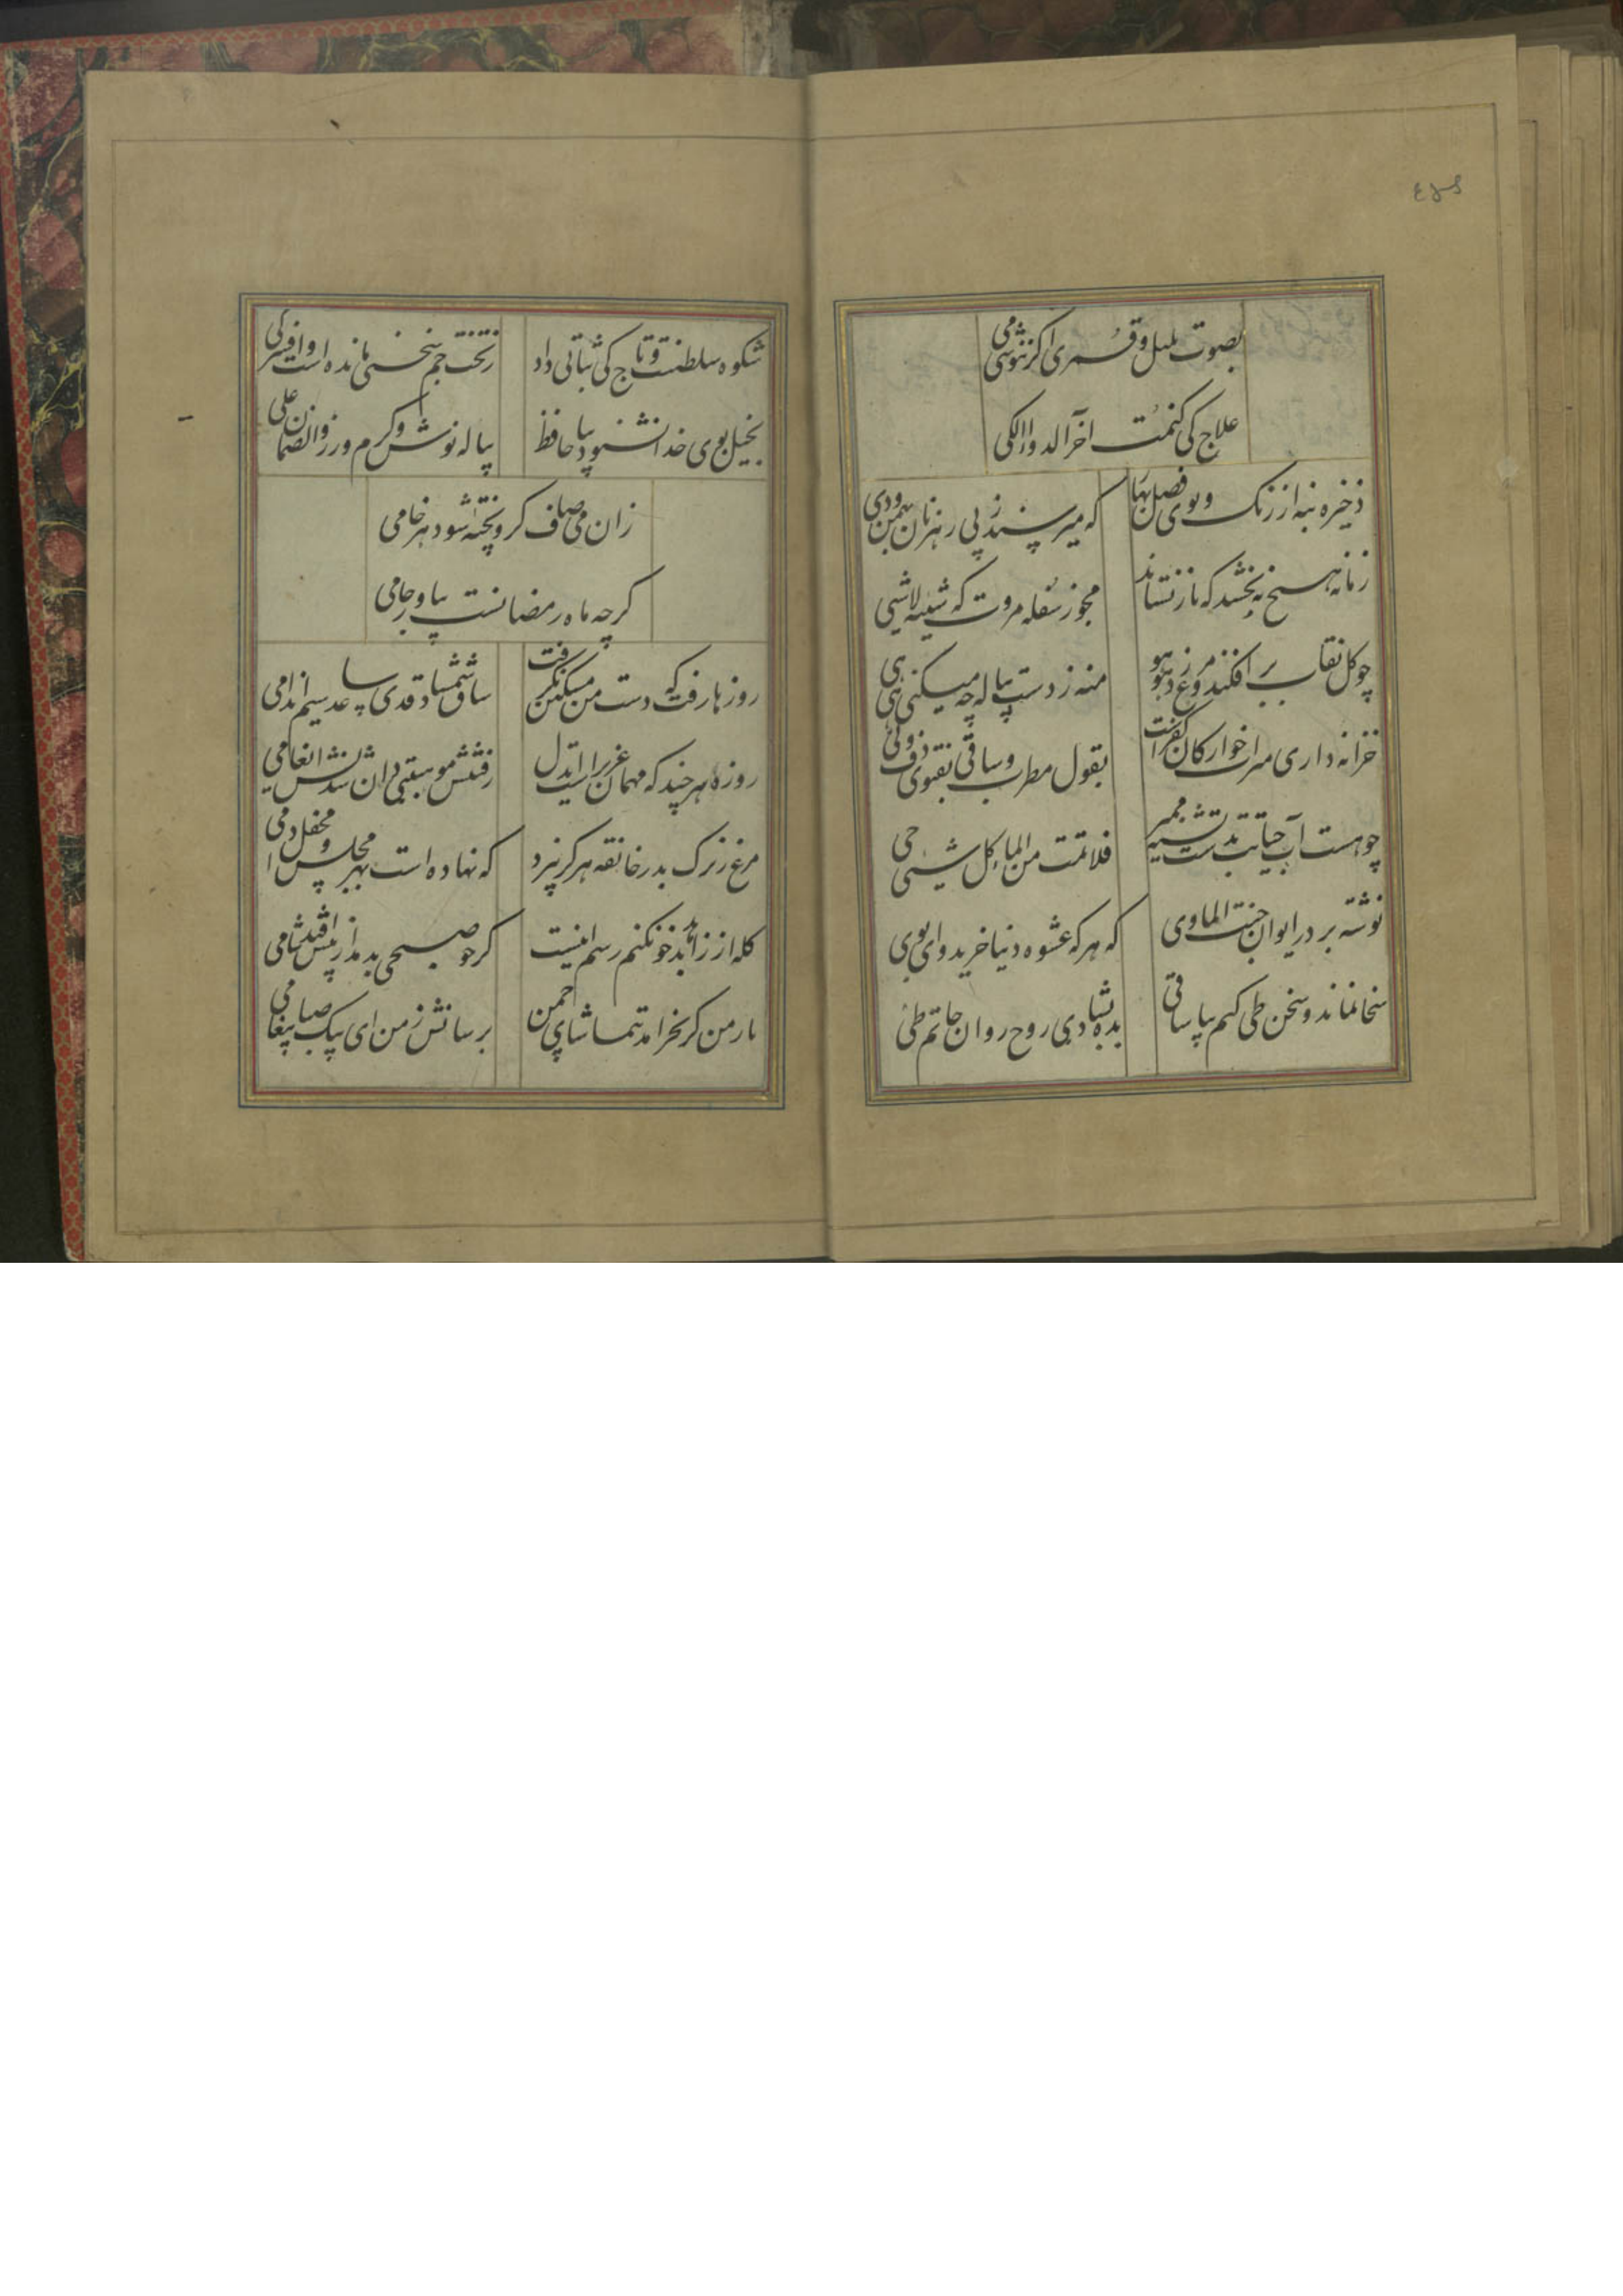 بصوت بلبل و قمری اگر ننوشی می
علاج کی کنمت اخرالدواالکی
ذخیره بنه از رنک و بوی فصل بهار
که میرسند ز پی رهزنان بهمن و دی
زمانه هیچ نه بخشد که باز نستاند
مجوز سفله مروت که شیئه لاشیی
چو کل نقاب بر افکند و مرغ زد هو هو
منه ز دست پیاله چه میکنی هی هی
خزانه داری میراث خوارکان کفرست
بقول مطرب و ساقی بفتوی دف و نی
چو هست آب حیاتت بدست تشنه ممیر
فلا تمت من الماء کل شیئی حی
نوشته بر در ایوان جنت الماوی
که هر که عشوه دنیا خرید وای بوی
سخا نماند و سخن طی کنم بیا ساقی
بده بشادی روح روان حاتم طی
شکوه سلطنت و تاج کی ثباتی داد
ز تخت جم سخنی مانده است و افسر کی
بخیل بوی خدا نشنود بیا حافظ
پیاله نوش و کرم ورز والضمان علی
زان می صاف کزو پخته شود هر خامی
کرچه ماه رمضانست بیاور جامی
روزها رفت که دست من مسکین نکرفت
ساق شمشاد قدی ساعد سیم اندامی
روزه هر چند که مهمان عزیز است ایدل
رفتنش موهبتی دان شدنش انعامی
مرغ زیرک بدر خانقه هرکز نپرد
که نهاده است بهر مجلس و محفل دامی
کله از زاهد بدخو نکنم رسم اینست
کر چو صبحی بدمد از پیش افتد شامی
یار من کر بخرامد بتماشای چمن
برسانش ز من ای پیک صبا پیغامی